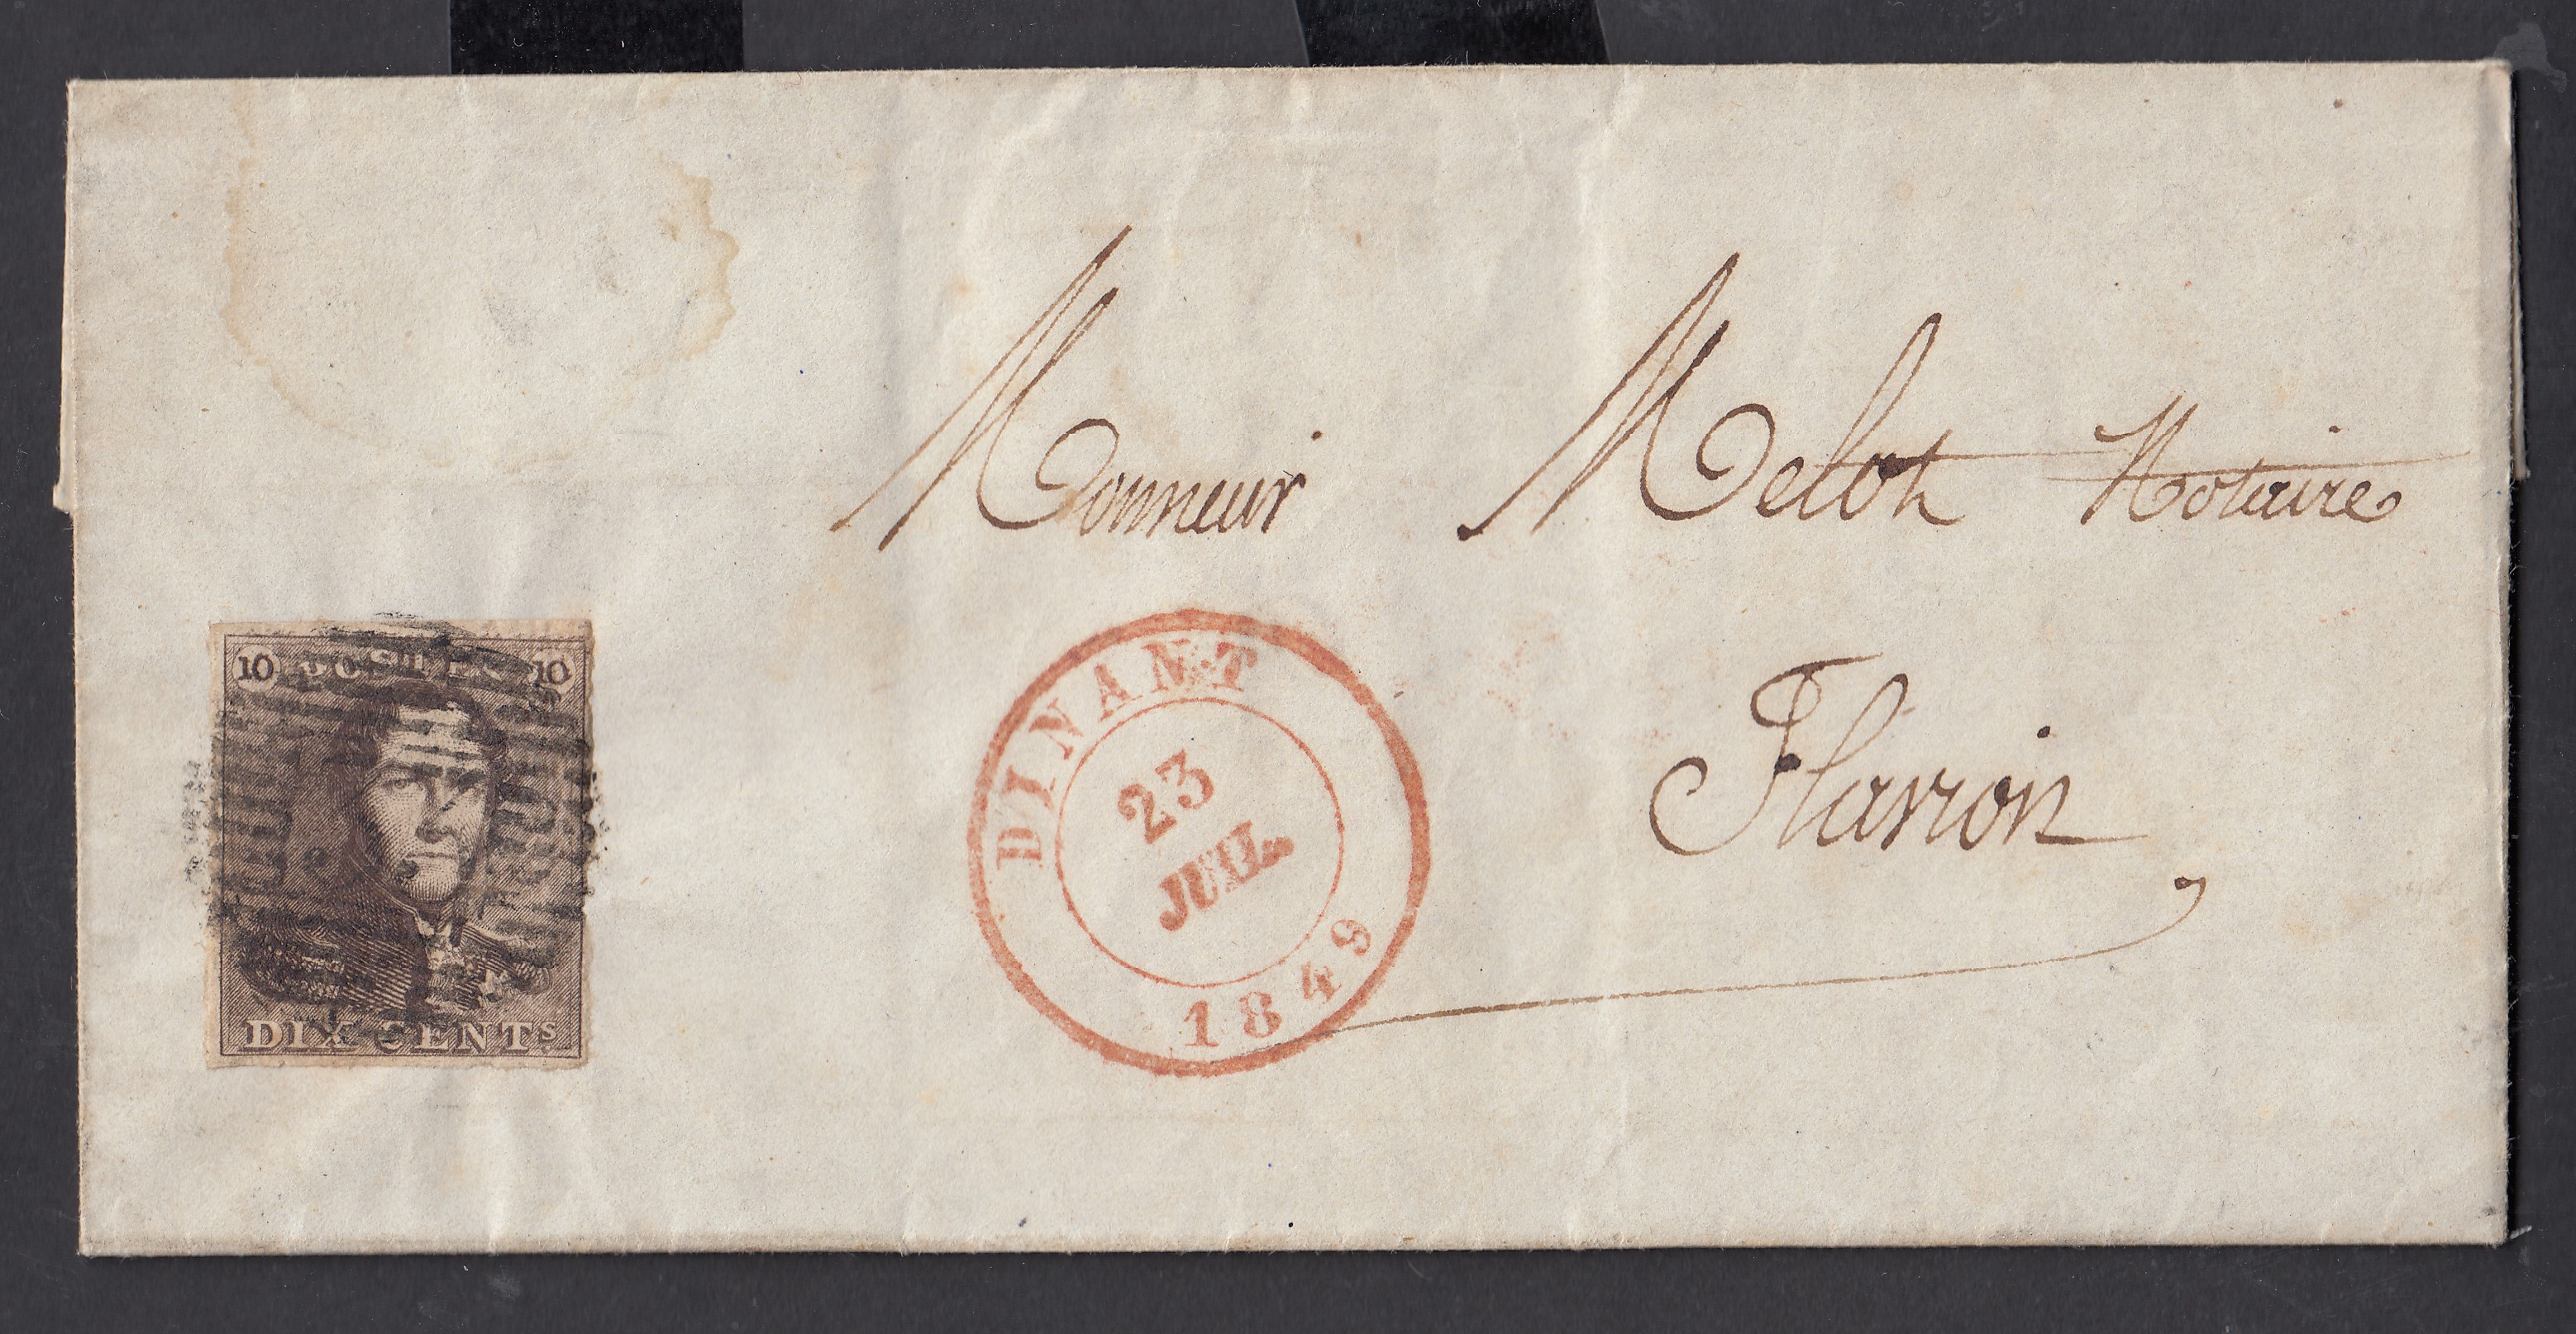 Monsieur Melot Notaire
Flavion
10 POSTES 10
DIX CENTS
DINANT
23
JUIL.
1849